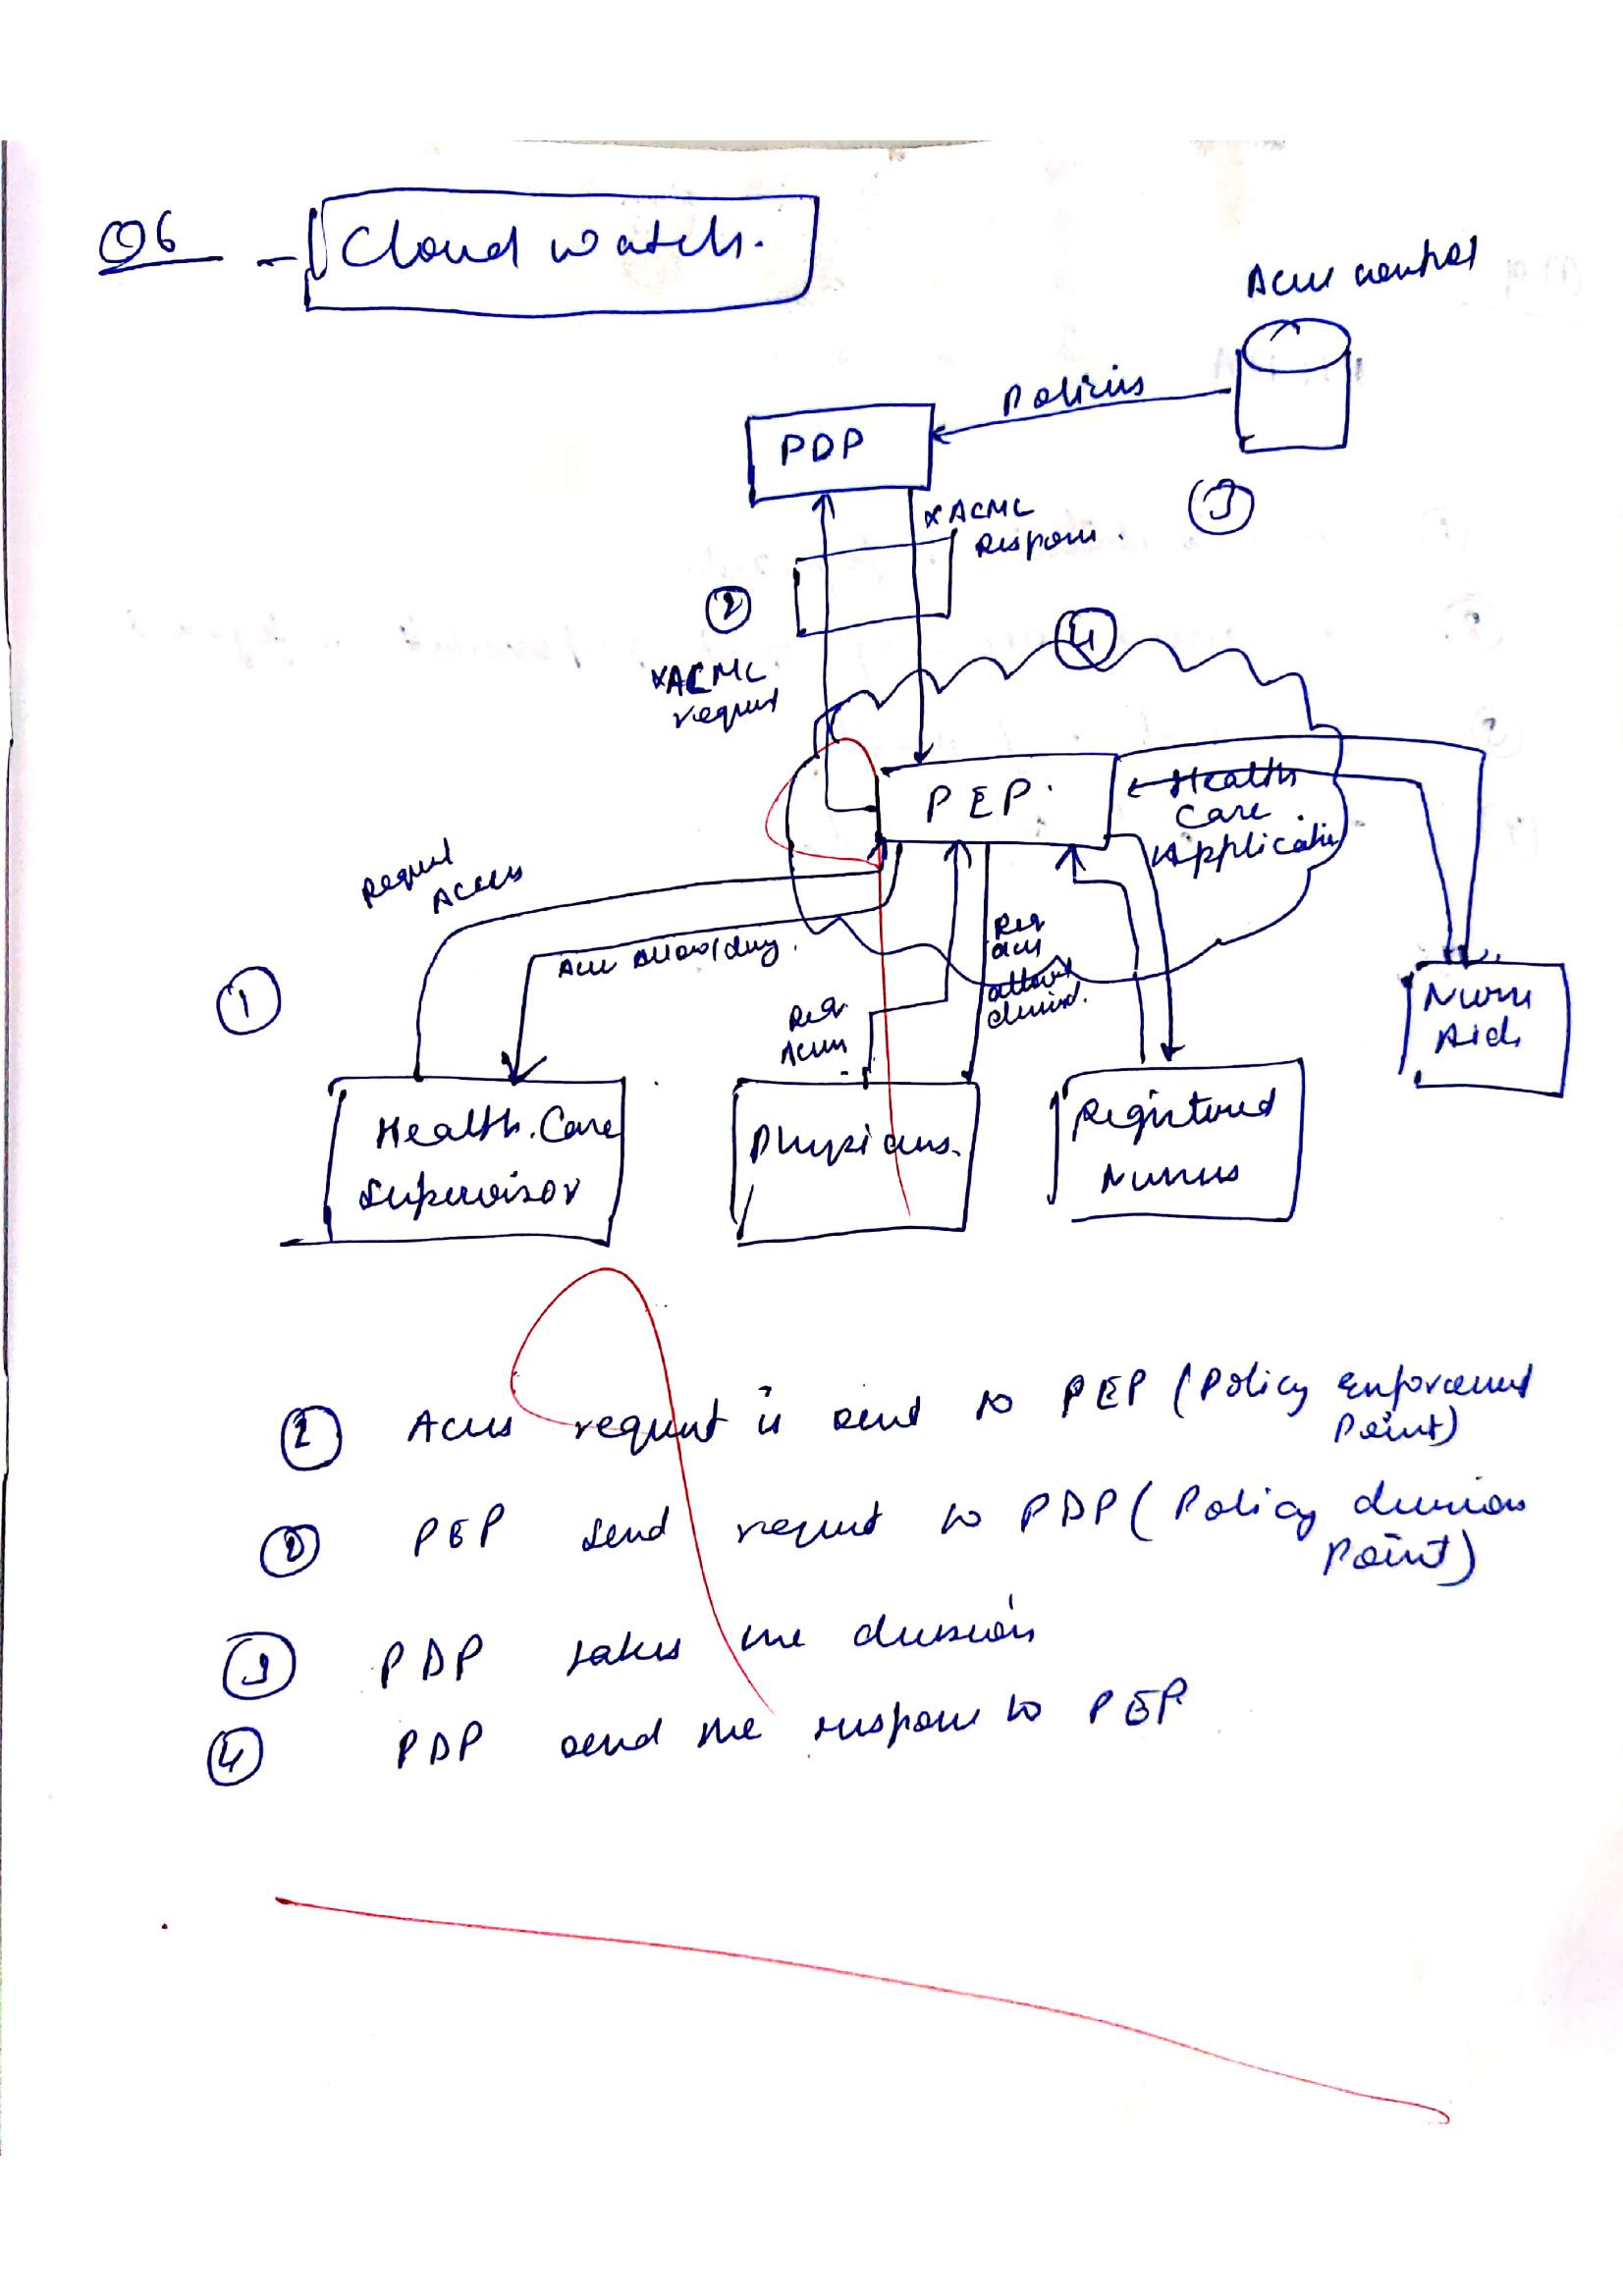 Q6 - Cloud watch.
Access control
Policies
PDP
XACML
Response.
3
2
4
XACML
request
PEP.
Health
Care
Application
Request
Access
Access Allow/deny.
Req
Access
Req
access
allow/
denied.
1
Nurse
Aids
Health.Care
Supervisor
Physicians.
Registered
Nurses
Access request is send to PEP (Policy Enforcement
Point)
2 PEP send request to PDP (Policy decision
Point)
3 PDP takes the decision
4 PDP send the response to PEP